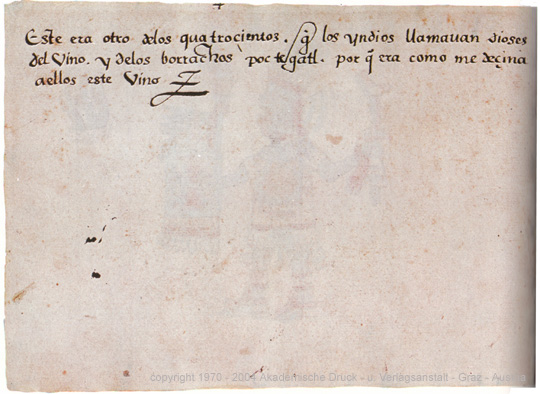 Este era otro delos quatrocientos. q̃ los yndios llamauan dioses
del Vino. y delos borrachos poctecatl. por q̃ era como medeçina
aellos este Vino
copyright 1970 - 2004 Akademische Druck - u. Verlagsanstalt - Graz - Austria